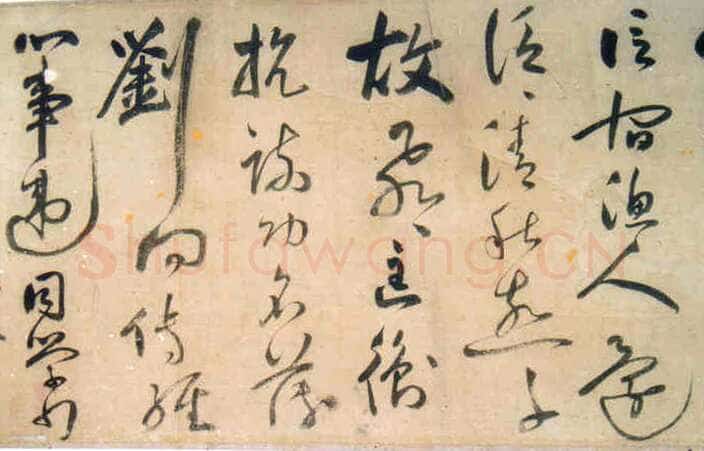 信宿漁人還
泛〻清秋燕子
故飛〻匡衡
抗疏功名薄
劉向傳經
心事違同學少
Shufawang.CN